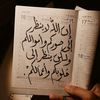 إن الله لا ينظر
إلى صوركم وأموالكم
ولكن ينظر إلى
قلوبكم وأعمالكم